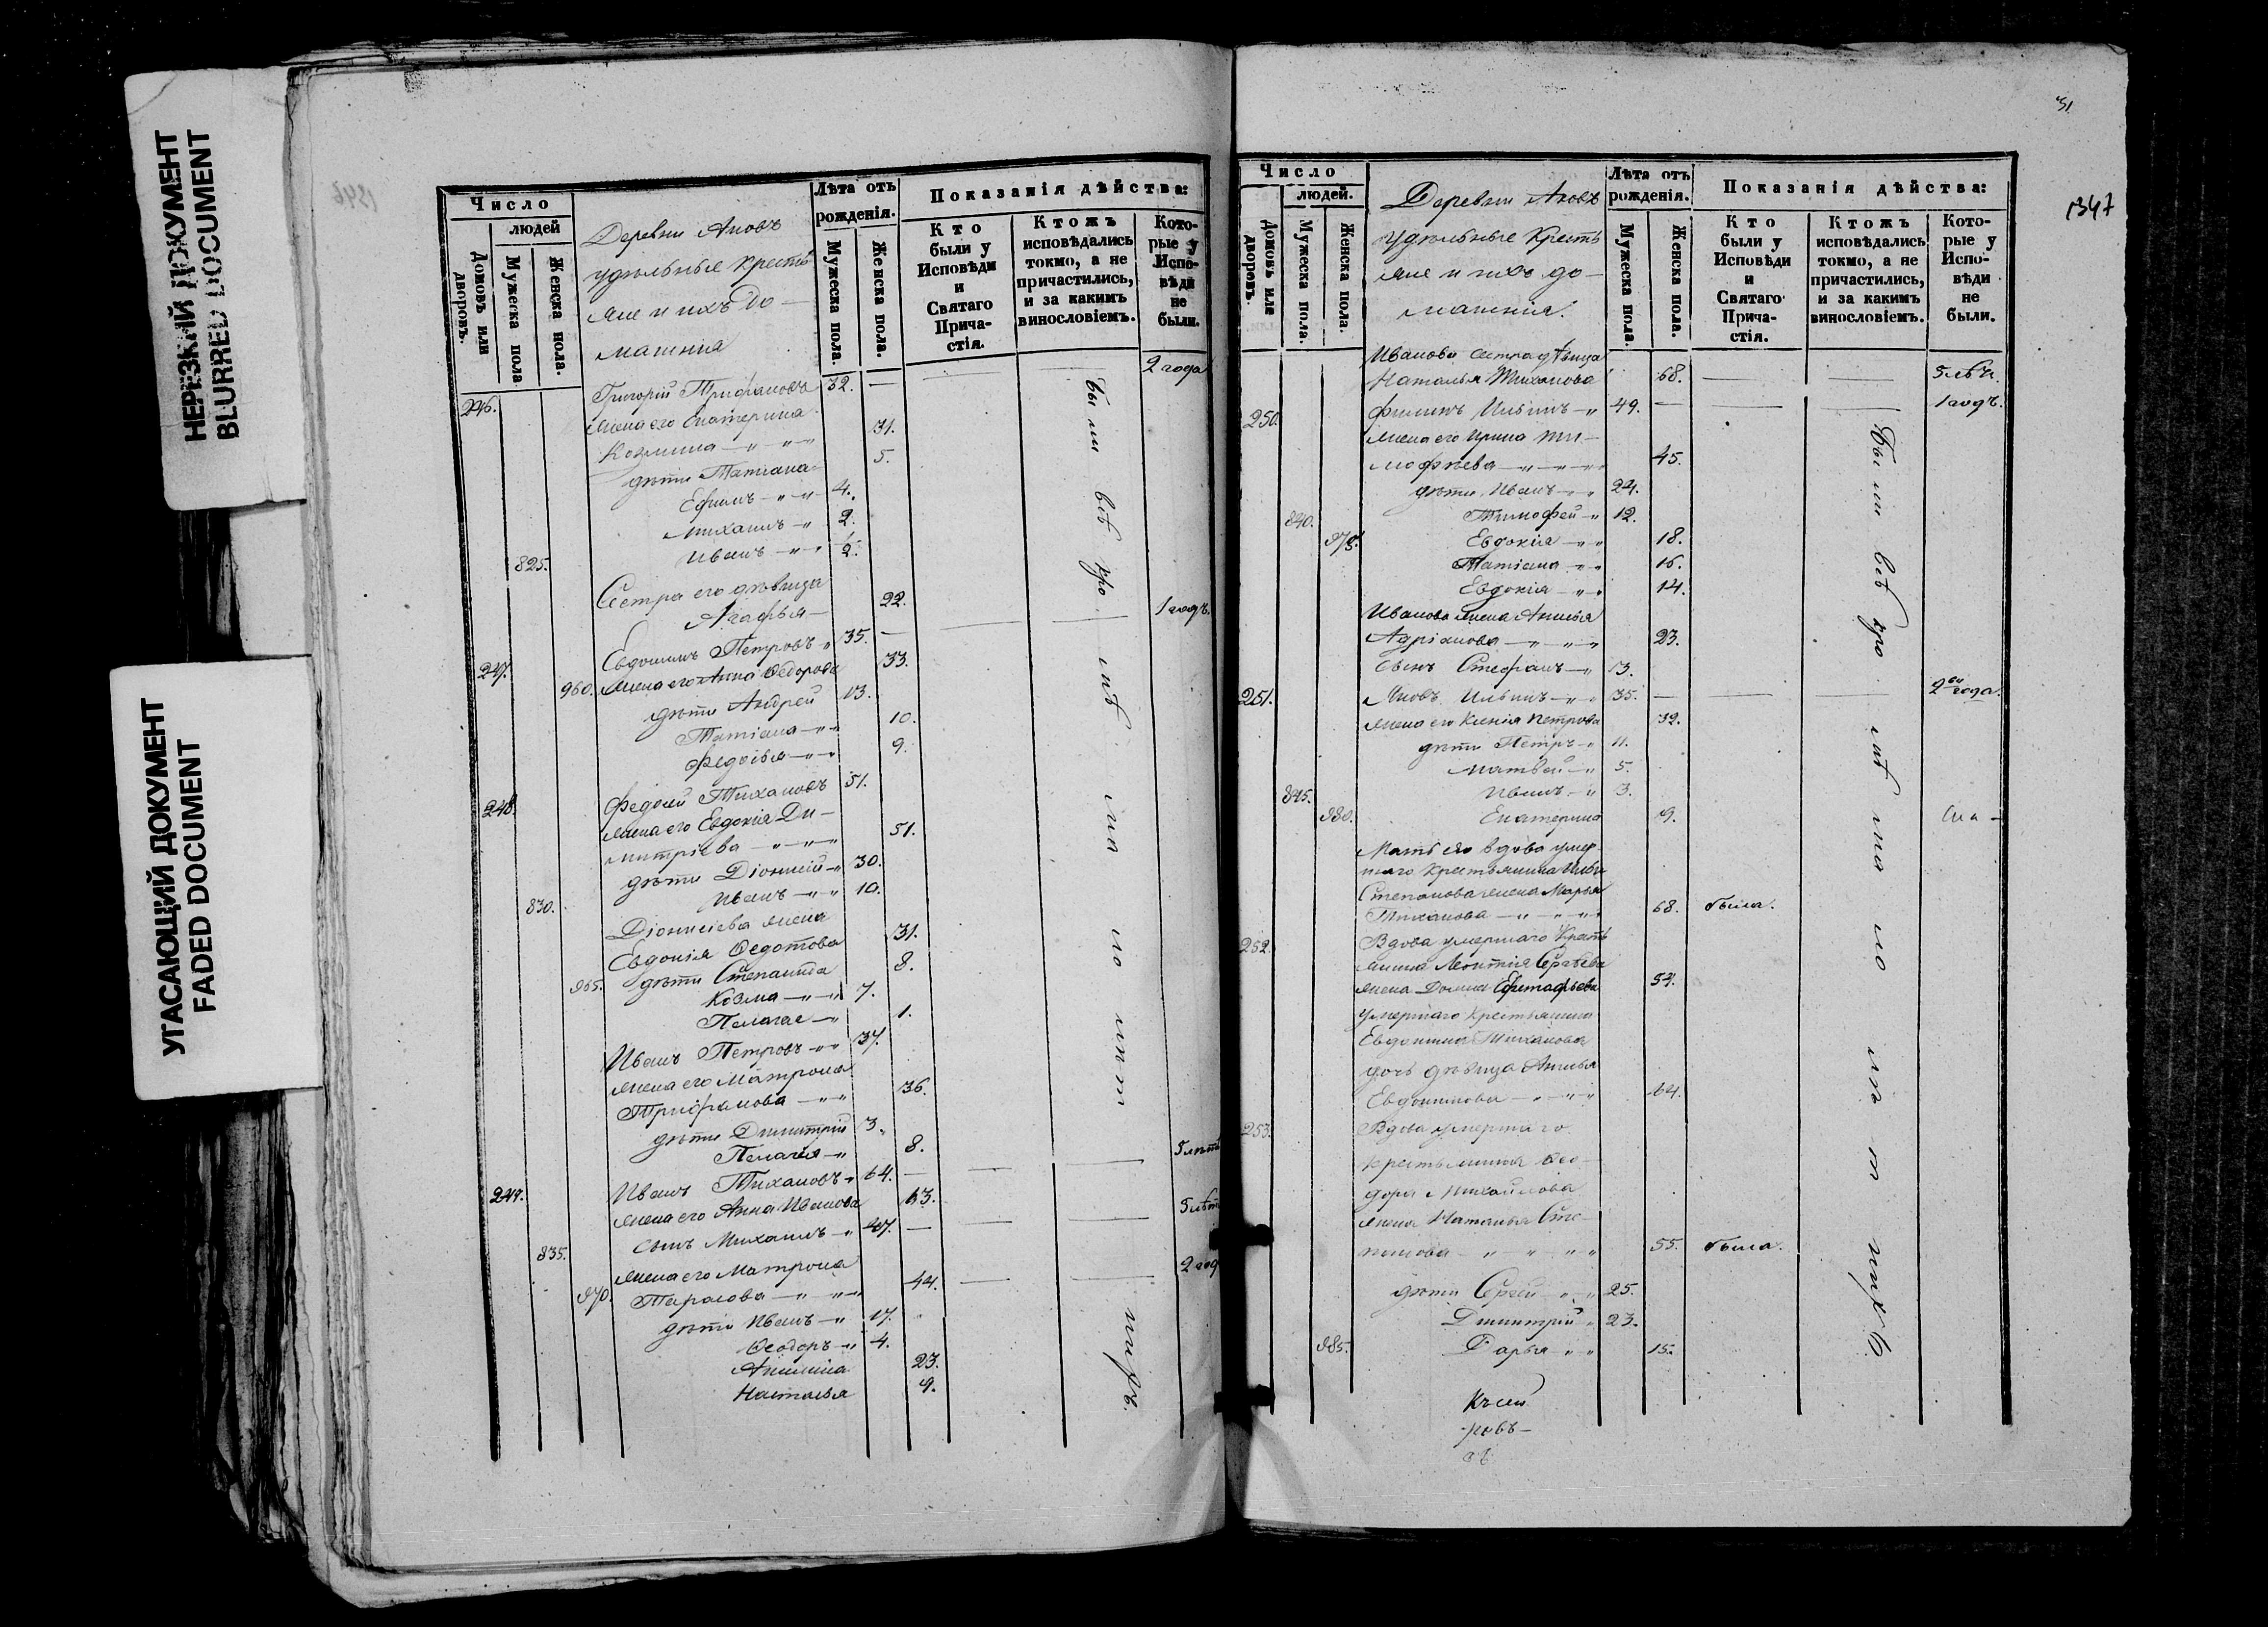 НЕРЕЗКИЙ ДОКУМЕНТ
BLURRED DOCUMENT
УГАСАЮЩИЙ ДОКУМЕНТ
FADED DOCUMENT
Число
людей
Домовъ или дворовъ.
Мужеска пола
Женска пола.
Деревни Аковъ
удѣльные кресть
яне и ихъ до-
машнія
Лѣта отъ рожденія.
Мужеска пола.
Женска пола.
Показанія дѣйства:
Кто были у Исповѣди и Святаго Прича-стія.
Ктожъ исповѣдались токмо, а не причастились, и за какимъ винословіемъ.
Кото-рые у Испо-вѣди не были.
246. Григорій Трифановъ 32. — 2 года
жена его Екатерина
Козмина 31.
дѣти Татіана 5.
Ефимъ 4.
Михаилъ 2.
825. Иванъ ½.
Сестра его дѣвица
Агафья 22.
247. Евдокимъ Петровъ 35. — 1 годъ.
960. жена его Анна Ѳедорова 33.
дѣти Андрей 13.
Татіана 10.
Федосья 9.
248. Федосій Тихановъ 51.
жена его Евдокія Ди-
митріева 51.
дѣти Діонисій 30.
830. Иванъ 10.
Діонисіева жена
Евдокія Ѳедотова 31.
965. дѣти Степанида 8.
Козма 7.
Пелагея 1.
Иванъ Петровъ 37.
жена его Матрона
Трифанова 36.
дѣти Димитрій 3.
Пелагея 8.
249. Иванъ Тихановъ 64. — 5 лѣтъ
жена его Анна Иванова 63.
835. сынъ Михаилъ 47. — 5 лѣтъ
жена его Матрона
970. Тарасова 44. 2 год
дѣти Иванъ 17.
Ѳеодоръ 4.
Акилина 23.
Наталья 9.
31
1347
Число
людей.
Домовъ или дворовъ.
Мужеска пола.
Женска пола.
Деревни Аковъ
удѣльные кресть
яне и ихъ до-
машнія.
Лѣта отъ рожденія.
Мужеска пола.
Женска пола.
Показанія дѣйства:
Кто были у Исповѣди и Святаго Прича-стія.
Ктожъ исповѣдались токмо, а не причастились, и за какимъ винословіемъ.
Кото-рые у Испо-вѣди не были.
Иванова сестра дѣвица
Наталья Тиханова 68. — 5 лѣтъ.
250. Филипъ Ильинъ 49. — 1 годъ.
жена его Ирина Ти-
мофѣева 45.
дѣти Иванъ 24.
840. Тимофей 12.
975. Евдокія 18.
Татіана 16.
Евдокія 14.
Иванова жена Акилья
Адріанова 23.
Сынъ Стефанъ 3.
251. Яковъ Ильинъ 35. — 2 года.
жена его Ксенія Петрова 32.
дѣти Петръ 11.
Матвей 5.
845. Иванъ 3.
980. Екатерина 9.
Мать его вдова умер-
шаго крестьянина Ильи
Степанова жена Марья
Тиханова 68. была.
252. Вдова умершаго кресть
янина Леонтія Сергѣева
жена Домна Евстафьева 54.
умершаго крестьянина
Евдокима Тиханова
дочь дѣвица Акилья
Евдокимова 64.
253. Вдова умершаго
крестьянина Ѳео-
дора Михайлова
жена Наталья Сте-
панова 55. была.
дѣти Сергѣй 25.
Димитрій 23.
985. Дарья 15.